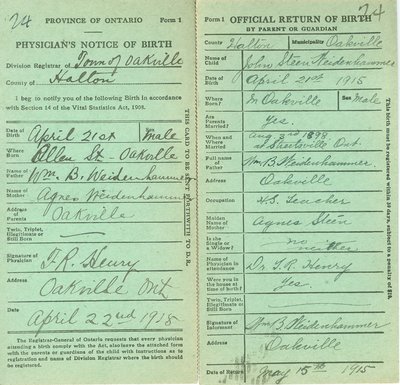 24
PROVINCE OF ONTARIO Form 1
PHYSICIAN'S NOTICE OF BIRTH
Division Registrar of Town of Oakville
County of Halton
I beg to notify you of the following Birth in accordance
with Section 14 of the Vital Statistics Act, 1908.
Date of Birth April 21st Male
Where Born Allen St - Oakville
Name of Father Wm. B. Weidenhammer
Name of Mother Agnes Weidenhammer
Address of Parents Oakville
Twin, Triplet, Illegitimate or Still Born
Signature of Physician F. R. Henry
Address Oakville Ont
Date April 22nd 1915
The Registrar-General of Ontario requests that every physician
attending a birth comply with the Act, also leave the attached form
with the parents or guardians of the child with instructions as to
registration and name of Division Registrar where the birth should
be registered.
THIS CARD TO BE SENT FORTHWITH TO D.R.
24
Form 1 OFFICIAL RETURN OF BIRTH
BY PARENT OR GUARDIAN
County Halton Municipality Oakville
Name of Child John Steen Weidenhammer
Date of Birth April 21st 1915
Where Born? In Oakville Sex Male
Are Parents Married? Yes.
When and Where Married Aug 3rd 1898
at Ont.
Full name of Father Wm. B. Weidenhammer.
Address Oakville
Occupation H.S. Teacher
Maiden Name of Mother Agnes Steen
Is she Single or a Widow? no neither
Name of Physician in attendance Dr. F. R. Henry
Were you in the house at time of birth? Yes
Twin, Triplet, Illegitimate or Still Born
Signature of Informant Wm B. Weidenhammer
Address Oakville
Date of Return May 15th 1915
This birth must be registered within 30 days, subject to a penalty of